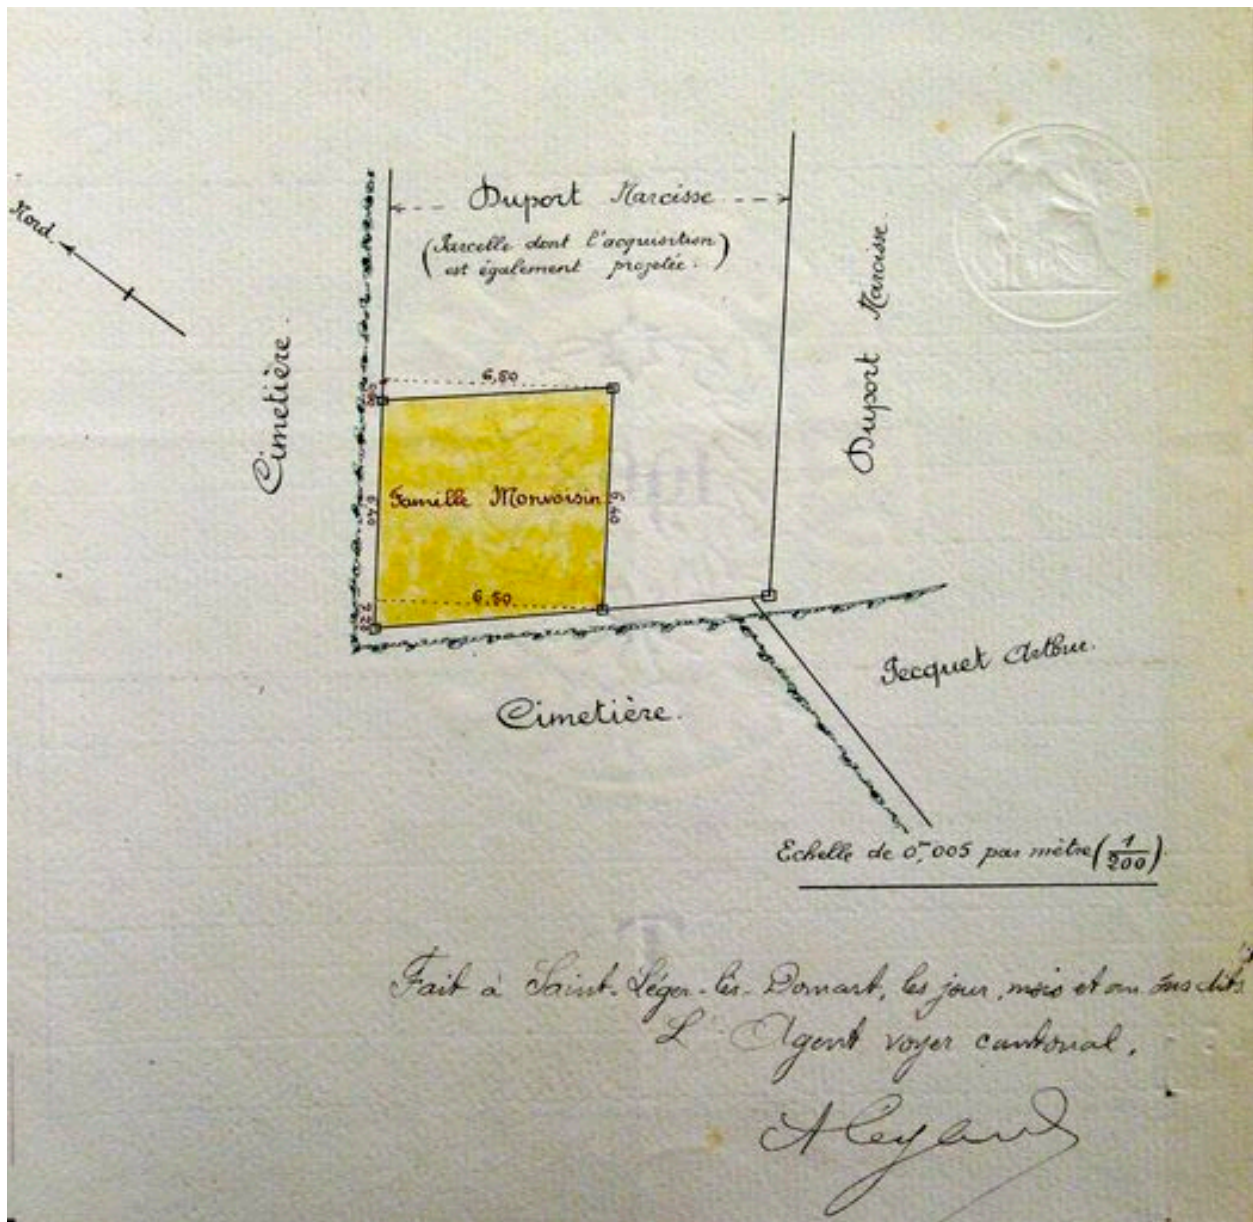 Nord.
Duport Narcisse
(Parcelle dont l'acquisition
est également projetée.)
Cimetière.
Duport Narcisse
6,50
Famille Monvoisin
6,40
6,40
6,50
Jecquet Arthur.
Cimetière.
Echelle de 0,m005 par mètre (1/200).
Fait à Saint-Léger-lès-Domart, les jour, mois et an susdits
L'Agent voyer cantonal,